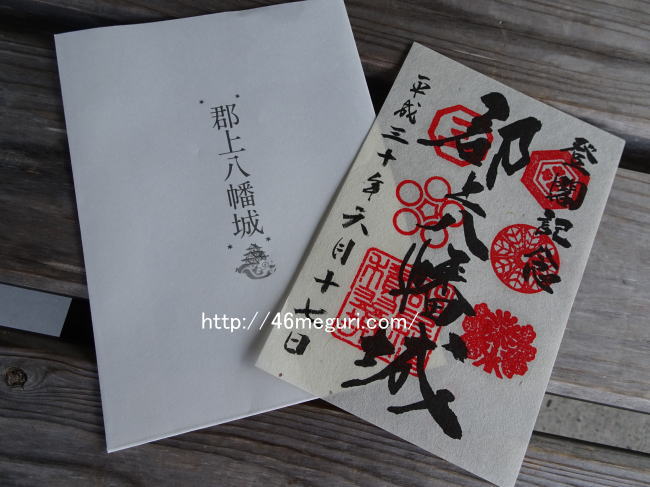 郡上八幡城
登閣記念
郡上八幡城
平成三十年六月十七日
http://46meguri.com/